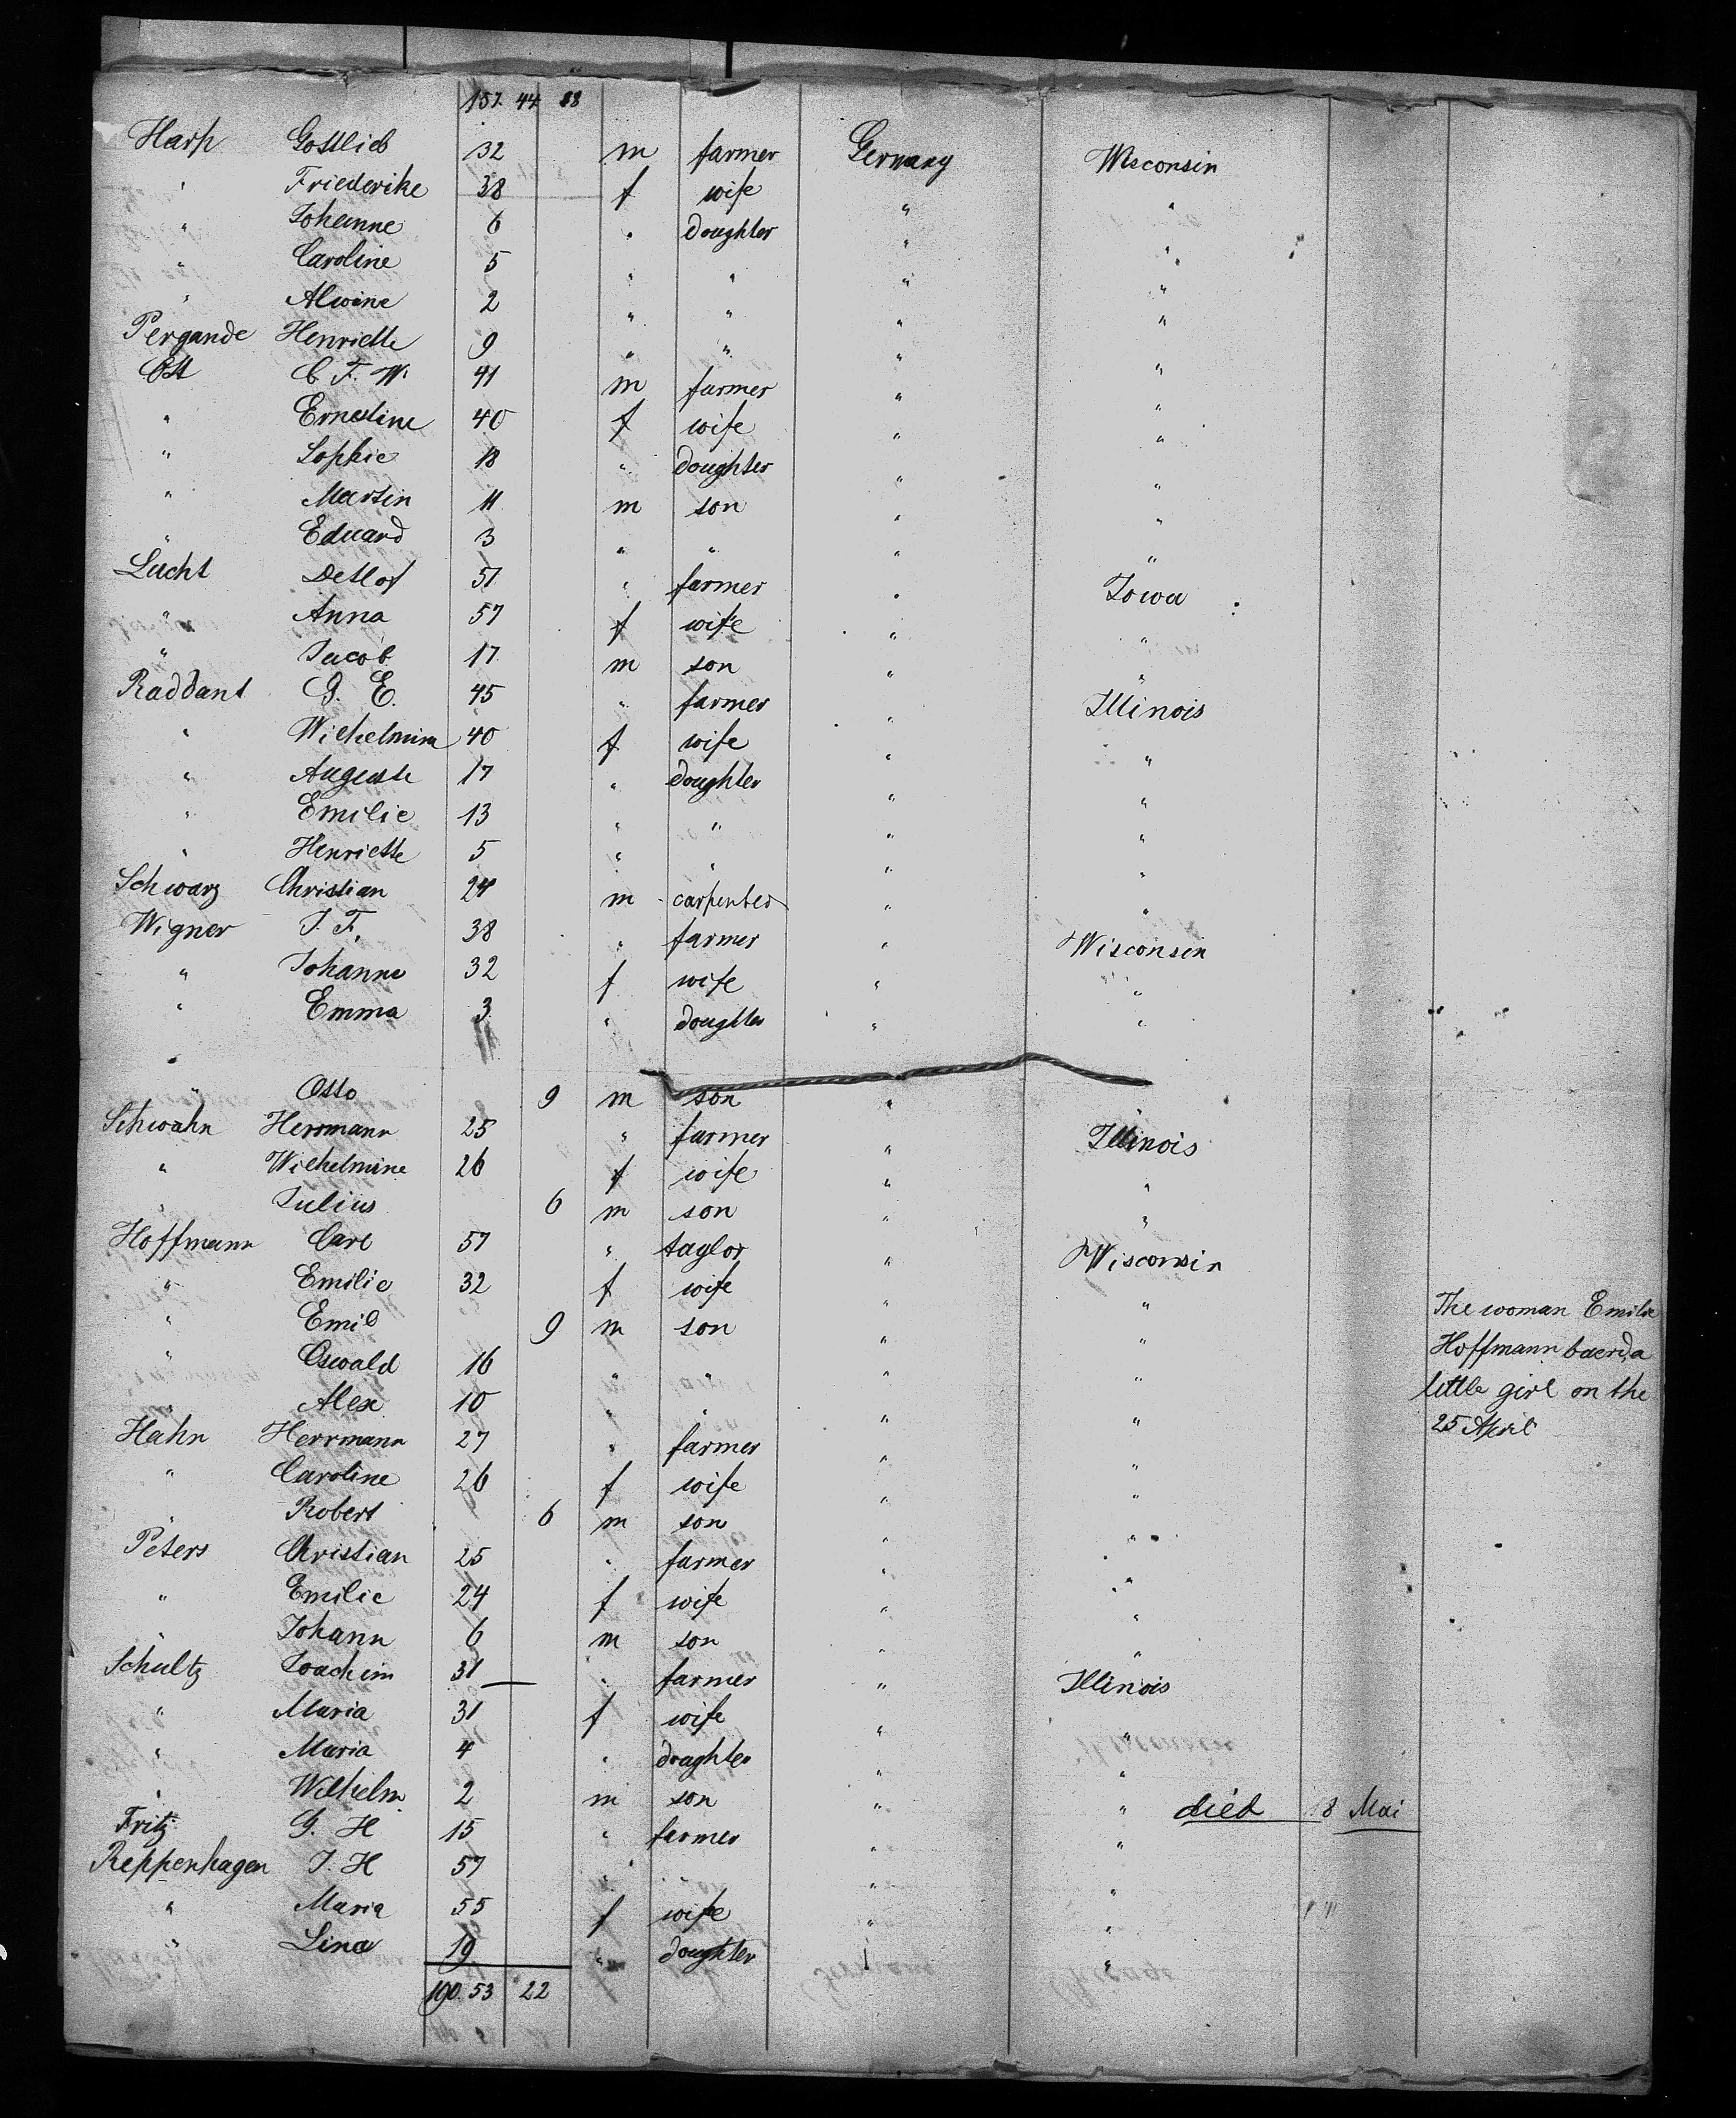 157. 44 18
Harp Gottlieb 32 m farmer Germany Wisconsin
" Friederike 38 f wife " "
" Johanne 6 " doughter " "
" Caroline 5 " " " "
" Alwine 2 " " " "
Pergande Henriette 9 " " " "
Ott C F. W. 41 m farmer " "
" Ernestine 40 f wife " "
" Sophie 18 " doughter " "
" Martin 11 m son " "
" Eduard 3 " " " "
Lucht Detlof 51 " farmer " Iowa
" Anna 57 f wife " "
" Jacob 17 m son " "
Raddant G. E. 45 " farmer " Illinois
" Wilhelmine 40 f wife " "
" Auguste 17 " doughter " "
" Emilie 13 " " " "
" Henriette 5 " " " "
Schwarz Christian 24 m carpenter " "
Wigner J. F. 38 " farmer " Wisconsin
" Johanne 32 f wife " "
" Emma 3 " doughter " "
" Otto 9 m son " "
Schwahn Herrmann 25 " farmer " Illinois
" Wilhelmine 26 f wife " "
" Julius 6 m son " "
Hoffmann Carl 57 " taylor " Wisconsin
" Emilie 32 f wife " "
The woman Emilie
" Emil 9 m son " "
Hoffmann baerd a
" Oswald 16 " " " "
little girl on the
" Alex 10 " " " "
25 April
Hahn Herrmann 27 " farmer " "
" Caroline 26 f wife " "
" Robert 6 m son " "
Peters Christian 25 " farmer " "
" Emilie 24 f wife " "
" Johann 6 m son " "
Schultz Joachim 31 " farmer " Illinois
" Maria 31 f wife " "
" Maria 4 " doughter " "
" Wilhelm 2 m son " " died 18 Mai
Fritz G. H 15 " farmer " "
Reppenhagen J. H 57 " " " "
" Maria 55 f wife " "
" Lina 19 " doughter " "
190. 53 22